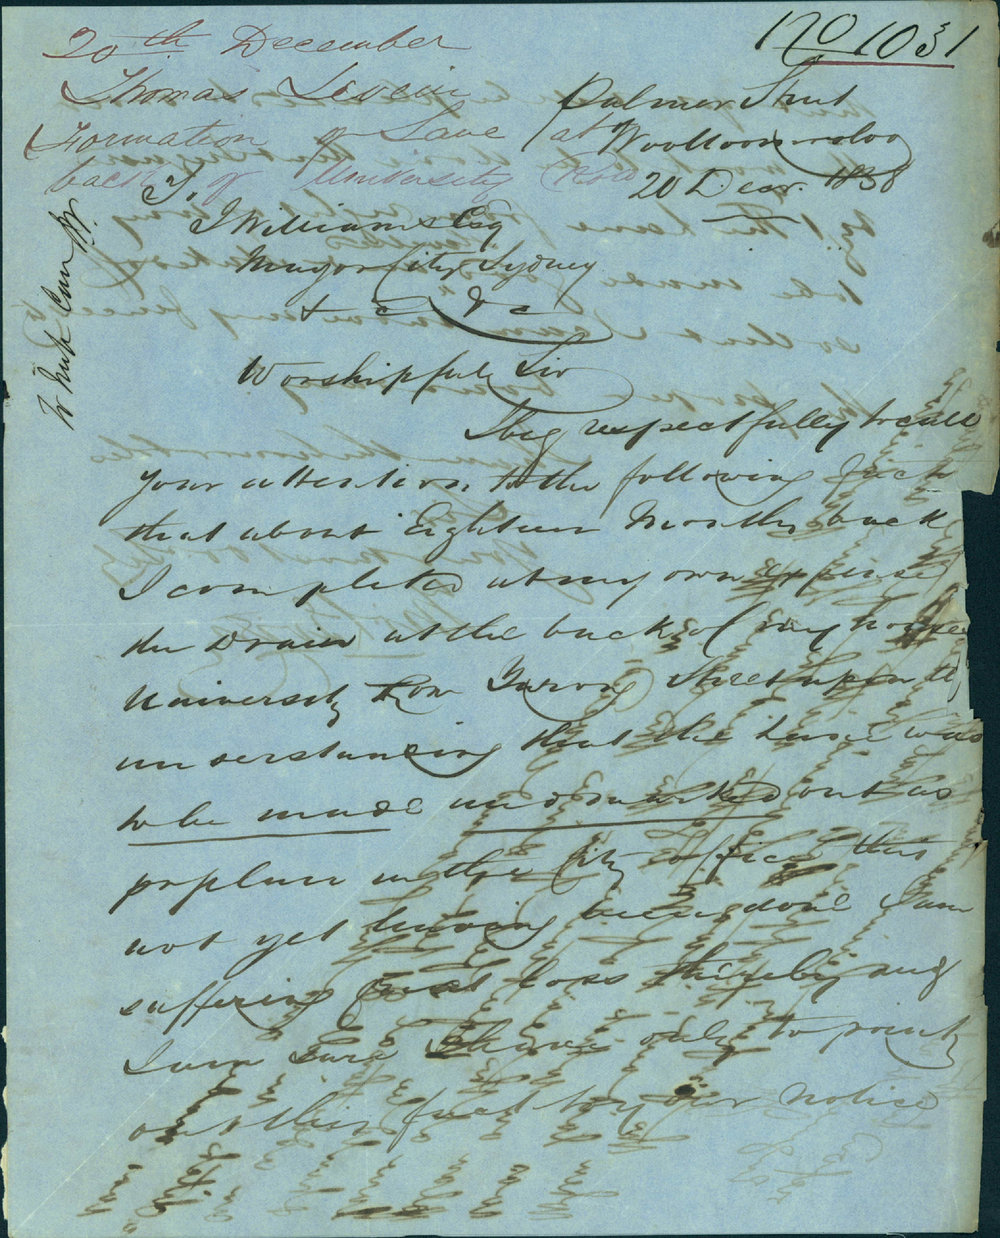 No 1031
20th December
Thomas
Formation of Lane at
back of University Row
Palmer Street
Woolloomooloo
20 Decr. 1858
To
J Williams Esq
Mayor City Sydney
&c &c
Worshipful Sir
I beg respectfully to call
your attention to the following fact
that about Eighteen Months back
I completed at my own expense
the Drain at the back of my house
University Row Street upon the
understanding that the Lane was
to be made and marked out as
pr plan in the City office this
not yet having been done I am
suffering great loss thereby and
I am sure I have only to point
out this fact to your notice